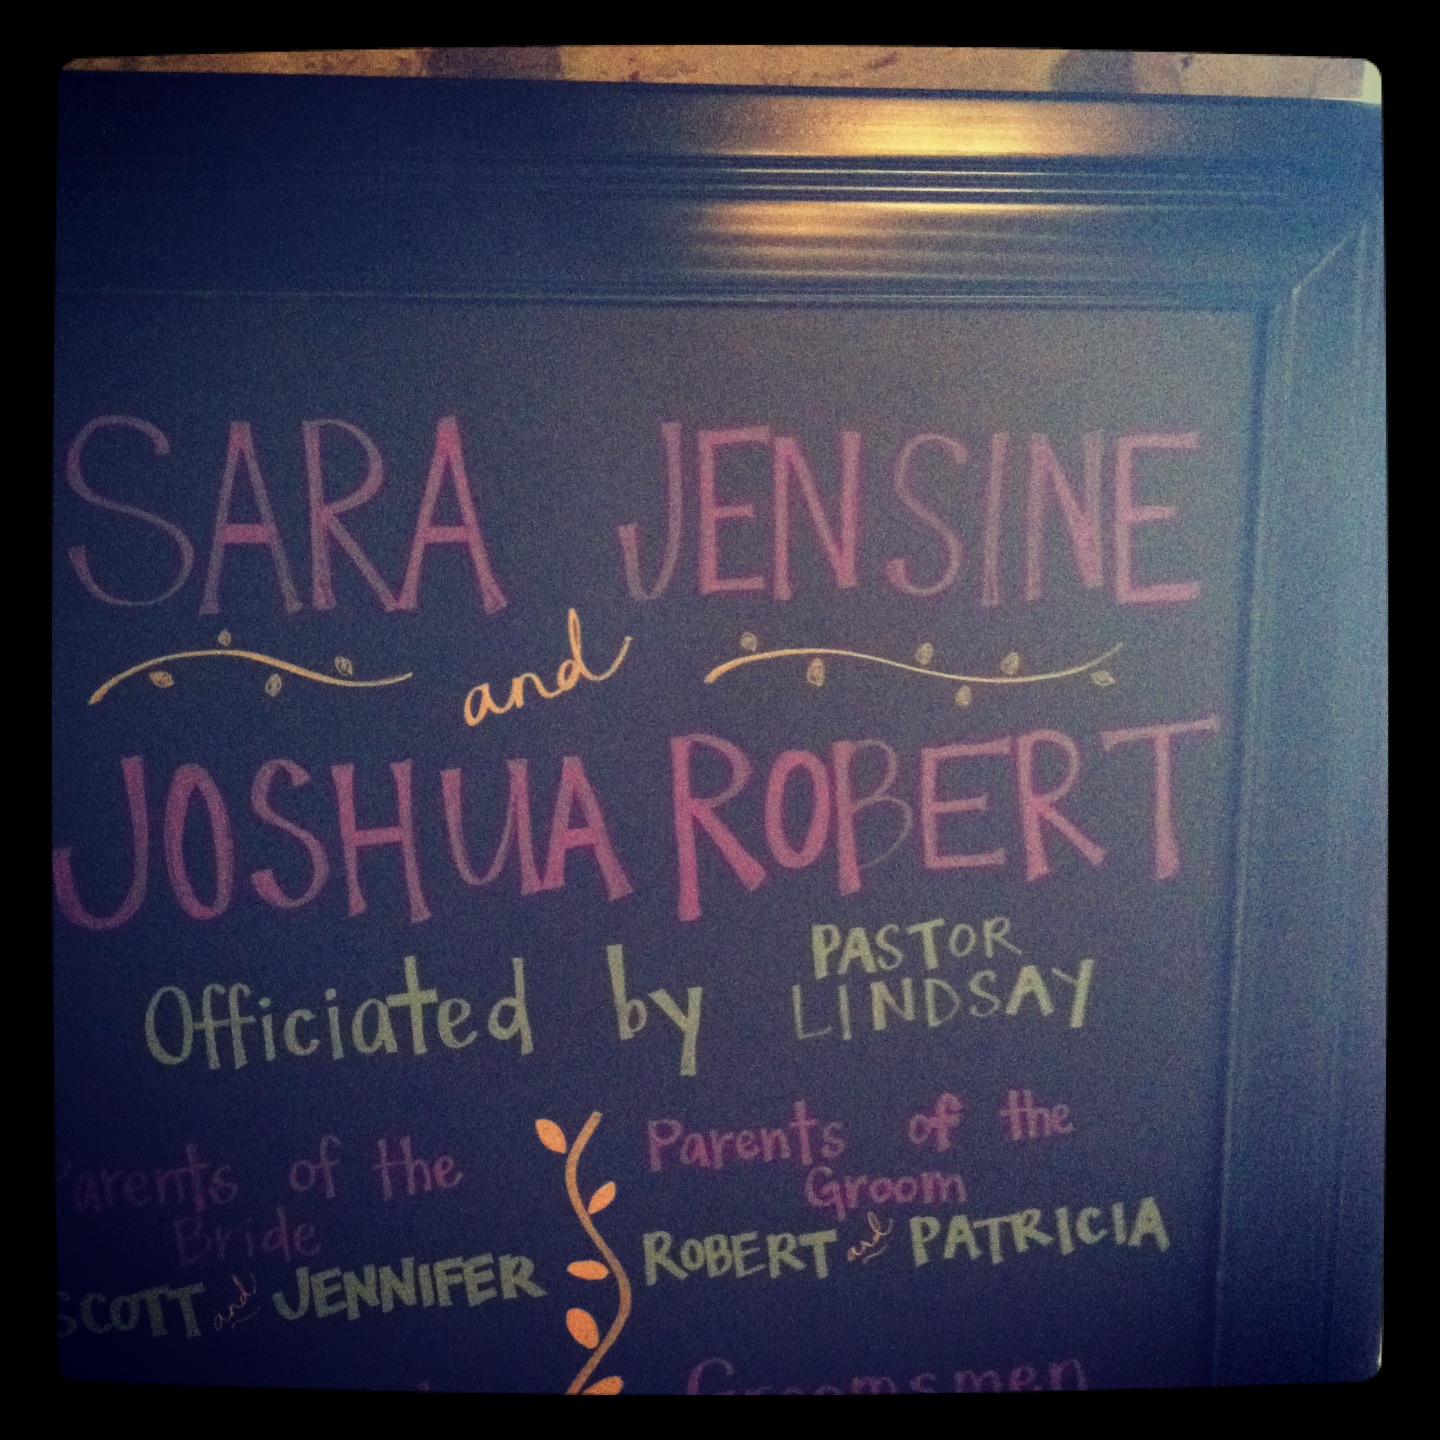 SARA JENSINE
and
JOSHUA ROBERT
Officiated by PASTOR LINDSAY
Parents of the Bride
SCOTT and JENNIFER
Parents of the Groom
ROBERT and PATRICIA
Groomsmen